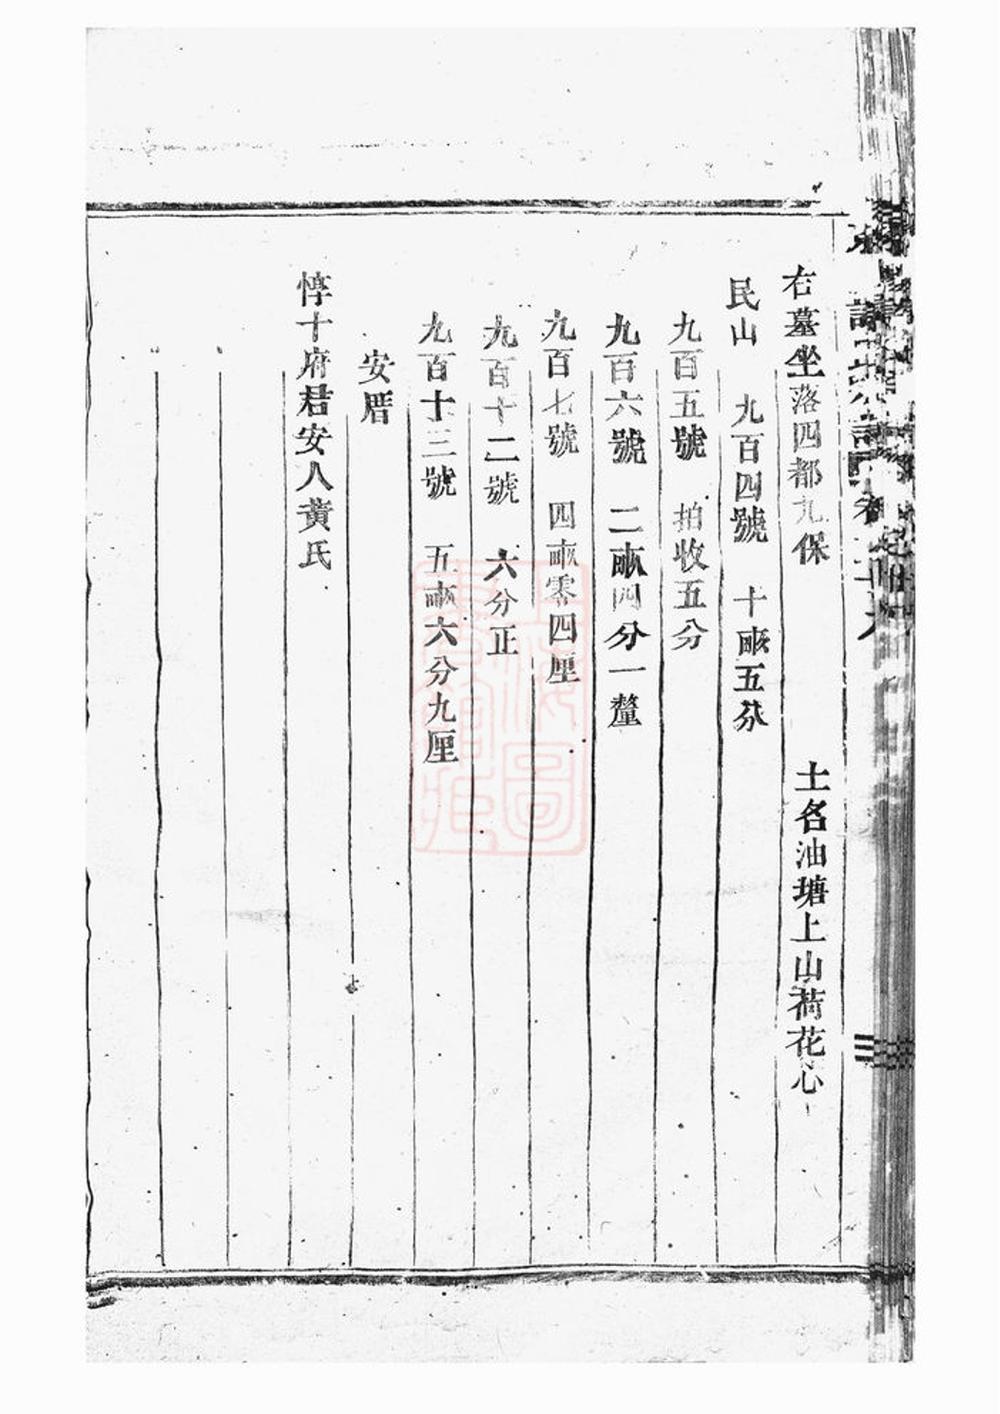 右墓坐落四都九保　土名油塘上山荷花心
民山　九百四號　十畝五分
九百五號　拍收五分
九百六號　二畝四分一釐
九百七號　四畝零四厘
九百十二號　六分正
九百十三號　五畝六分九厘
安厝
惇十府君安人黃氏
上海圖書館藏